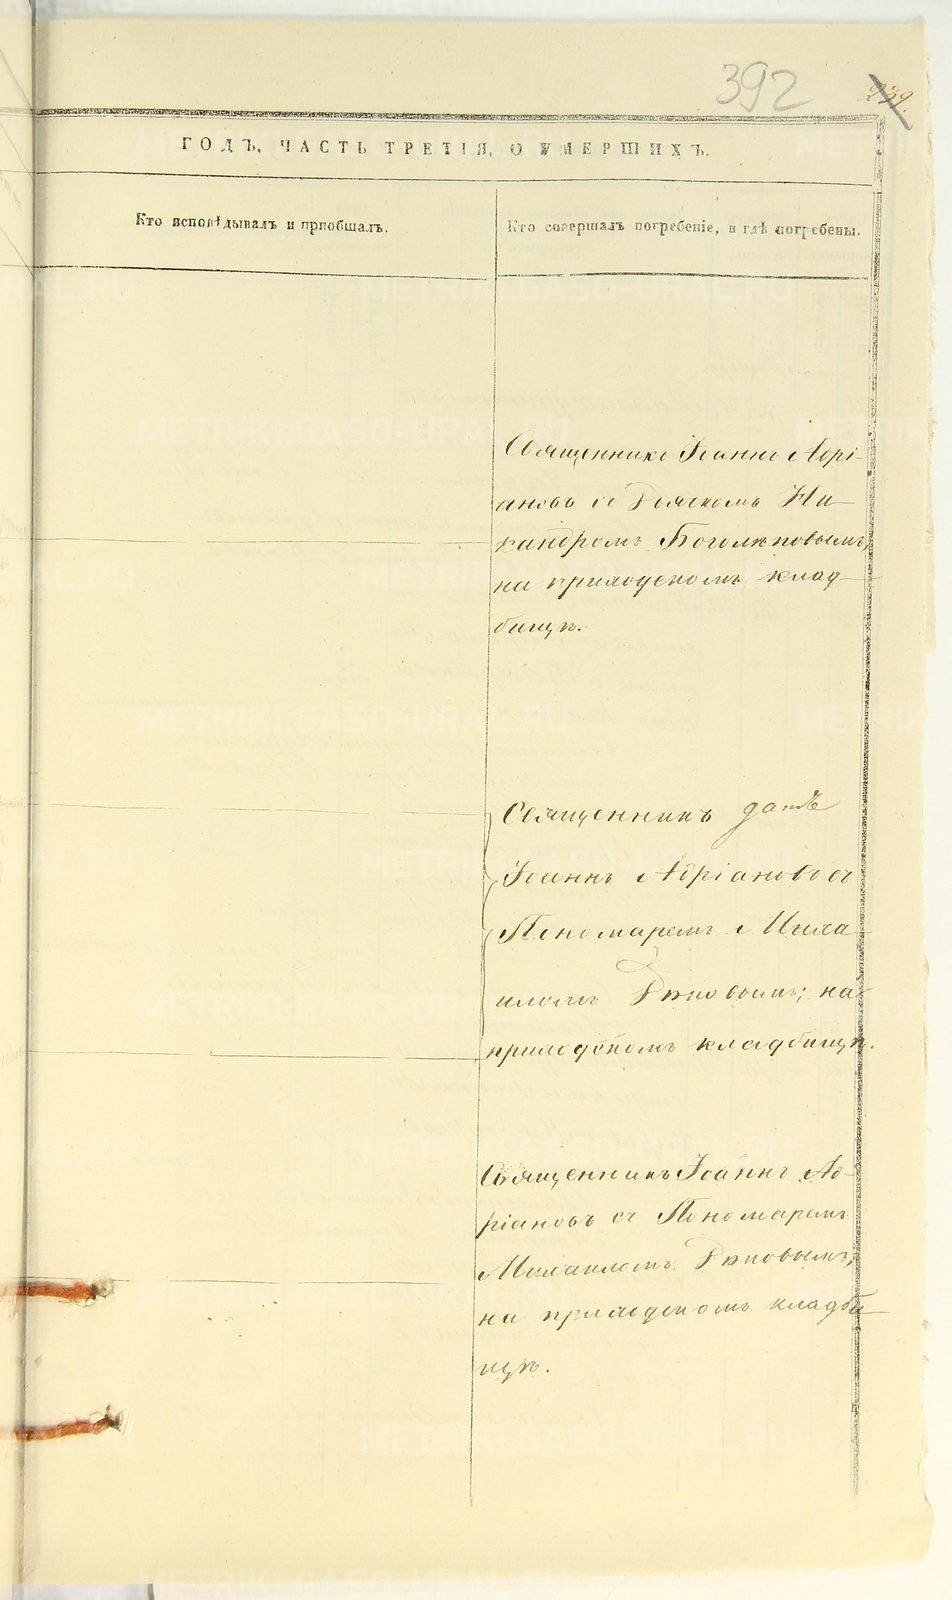 392
239.
ГОДЪ, ЧАСТЬ ТРЕТІЯ, О УМЕРШИХЪ.
Кто исповѣдывалъ и пріобщалъ.
Кто совершалъ погребеніе, и гдѣ погребены.
Священникъ Іоаннъ Адрі-
ановъ съ Дьячкомъ Ни-
кандромъ Боголѣповымъ,
на приходскомъ клад-
бищѣ.
Священникъ
Іоаннъ Адріановъ съ
Пономаремъ Миха-
иломъ Рѣповымъ; на
приходскомъ кладбищѣ.
Священникъ Іоаннъ Ад-
ріановъ съ Пономаремъ
Михаиломъ Рѣповымъ,
на приходскомъ кладби-
щѣ.
METRIKI.GASO-URAL.RU